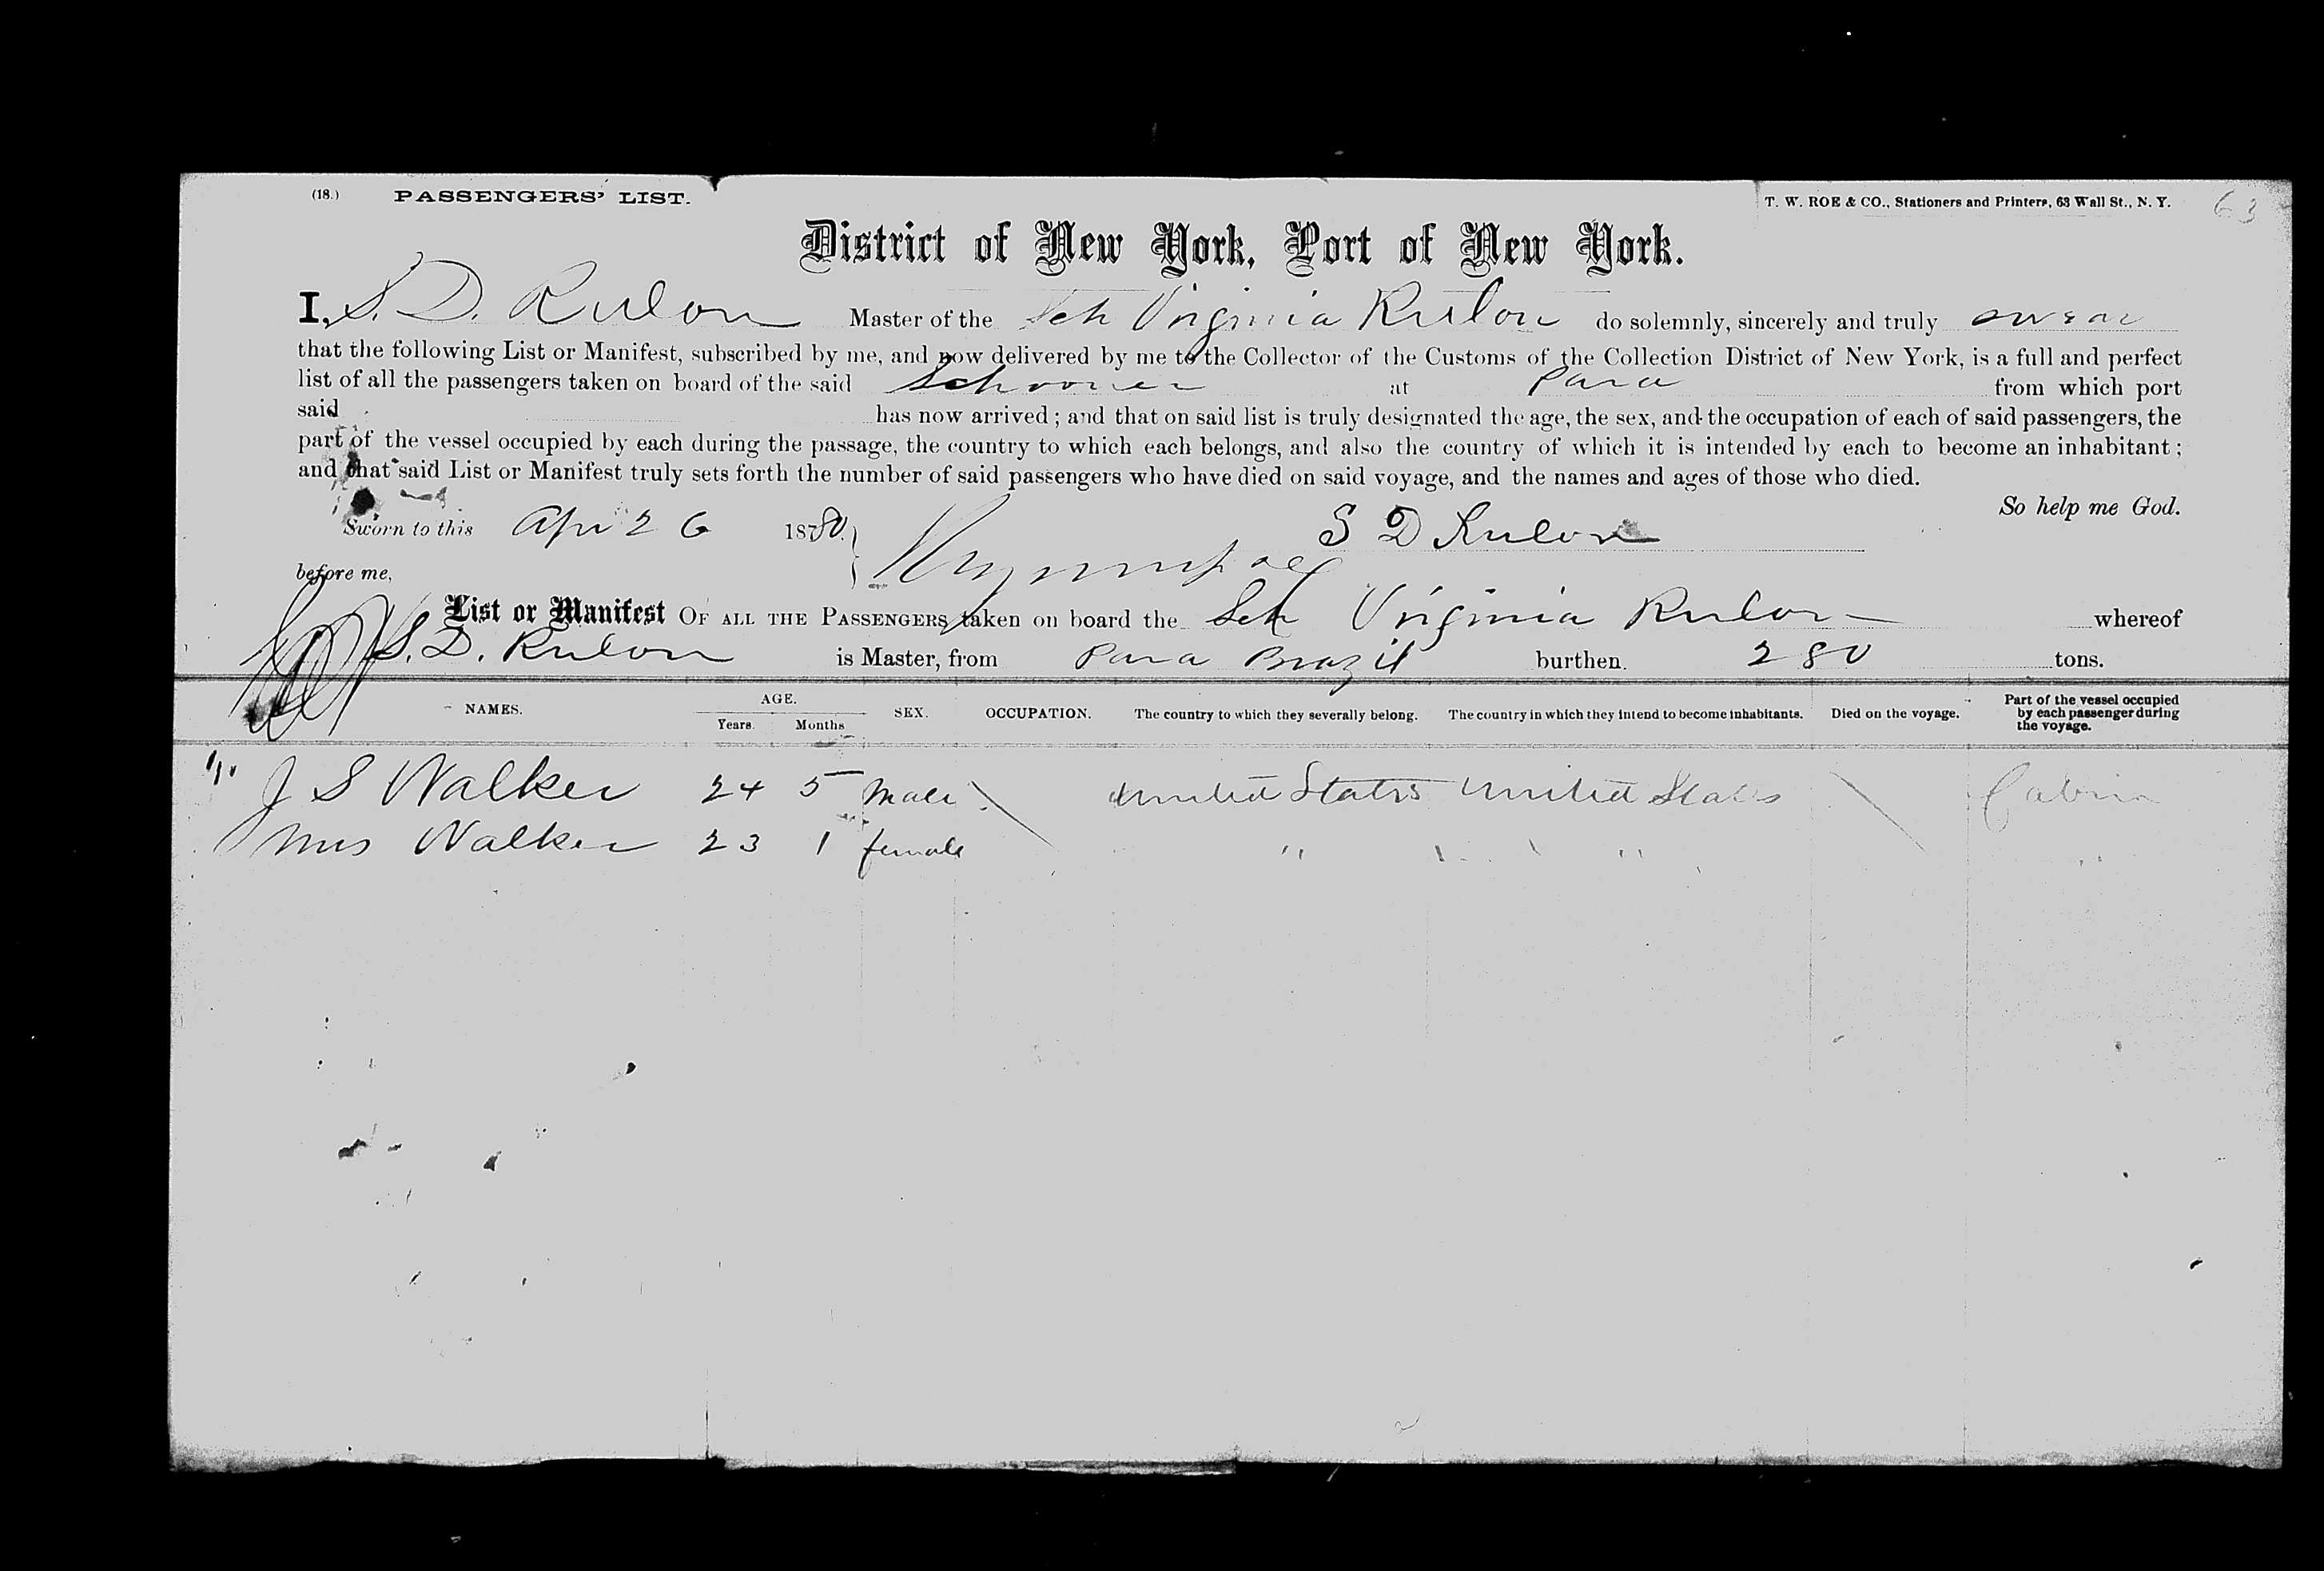 (18.) PASSENGERS' LIST. T. W. ROE & CO., Stationers and Printers, 63 Wall St., N. Y. 63
District of New York, Port of New York.
I, S. D. Rulon Master of the Sch Virginia Rulon do solemnly, sincerely and truly swear
that the following List or Manifest, subscribed by me, and now delivered by me to the Collector of the Customs of the Collection District of New York, is a full and perfect
list of all the passengers taken on board of the said Schooner at Para from which port
said has now arrived; and that on said list is truly designated the age, the sex, and the occupation of each of said passengers, the
part of the vessel occupied by each during the passage, the country to which each belongs, and also the country of which it is intended by each to become an inhabitant;
and that said List or Manifest truly sets forth the number of said passengers who have died on said voyage, and the names and ages of those who died.
So help me God.
Sworn to this Apr 26 1880. S D Rulon
before me,
List or Manifest OF ALL THE PASSENGERS taken on board the Sch Virginia Rulon whereof
S. D. Rulon is Master, from Para Brazil burthen 280 tons.
NAMES. AGE. Years. Months SEX. OCCUPATION. The country to which they severally belong. The country in which they intend to become inhabitants. Died on the voyage. Part of the vessel occupied by each passenger during the voyage.
J S Walker 24 5 Male \ United States United States \ Cabin
Mrs Walker 23 1 female " " "